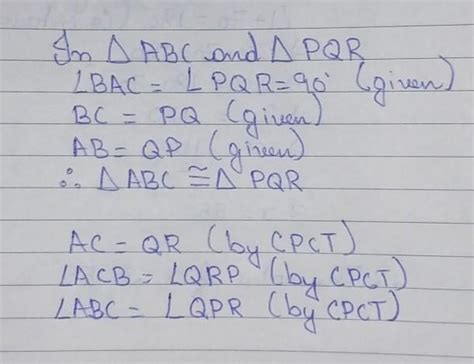 In △ ABC and △ PQR
∠BAC = ∠ PQR = 90° (given)
BC = PQ (given)
AB = QP (given)
∴ △ ABC ≅ △ PQR
AC = QR (by CPCT)
∠ACB = ∠QRP (by CPCT)
∠ABC = ∠QPR (by CPCT)